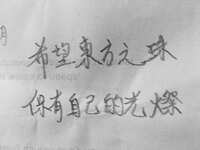 希望東方之珠
保有自己的光燦